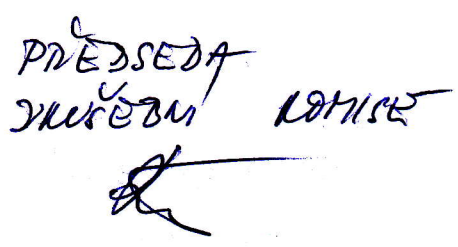 PŘEDSEDA
ZKUŠEBNÍ KOMISE